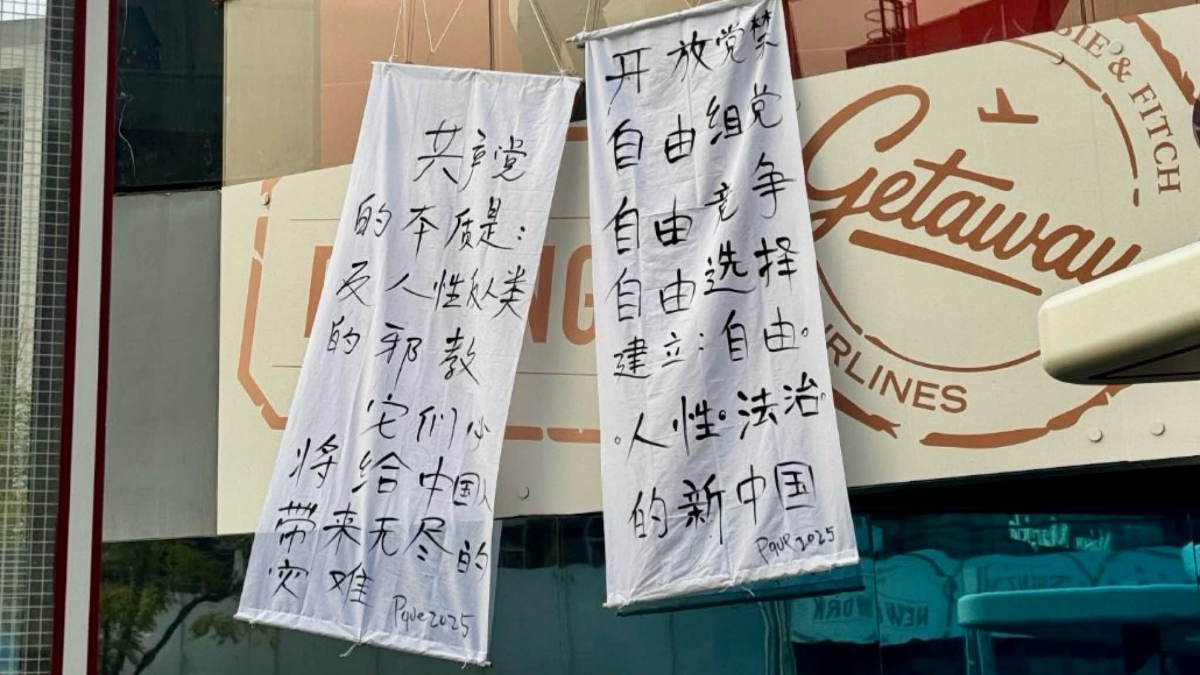 共产党
的本质是:
反人性反人类
的邪教
它们必
将给中国人
带来无尽的
灾难
Pque2025
开放党禁
自由组党
自由竞争
自由选择
建立:自由。
。人性。法治。
的新中国
Pque2025
Getaway
IRLINES
BIE & FITCH
NG
NEW